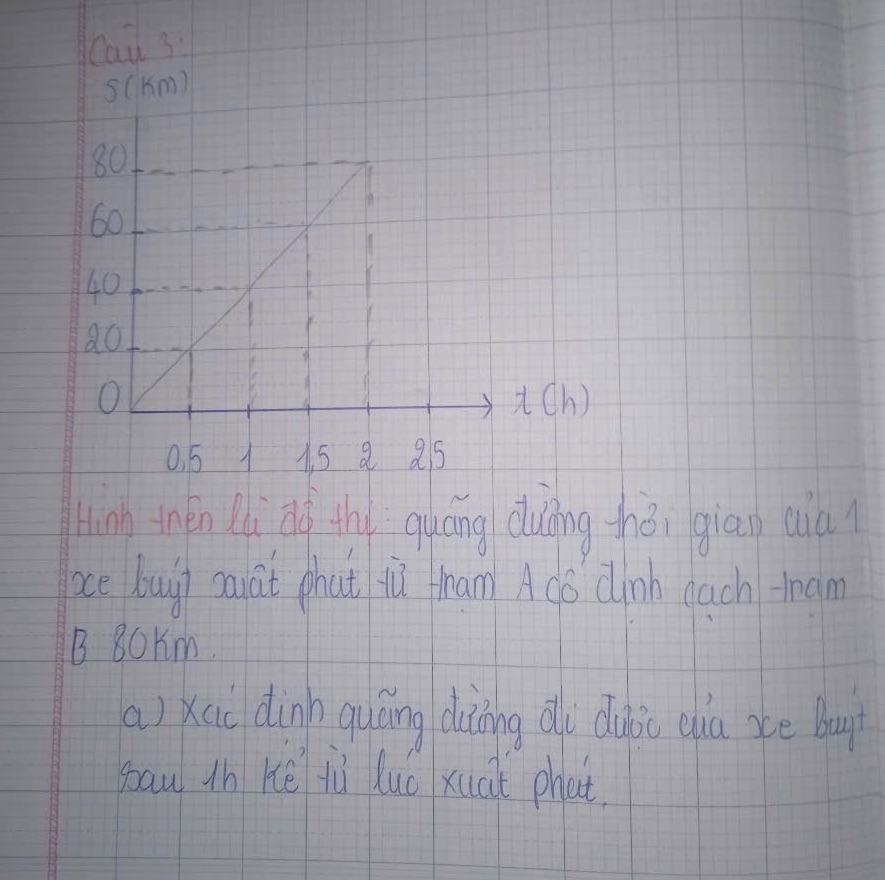 Câu 3:
S(Km)
80
60
40
20
0
t (h)
0,5 1 1,5 2 2,5
Hình trên là đồ thị quãng đường thời gian của 1
xe buýt xuất phát từ trạm A cố định cách trạm
B 80Km.
a) Xác định quãng đường đi được của xe buýt
sau 1h kể từ lúc xuất phát.